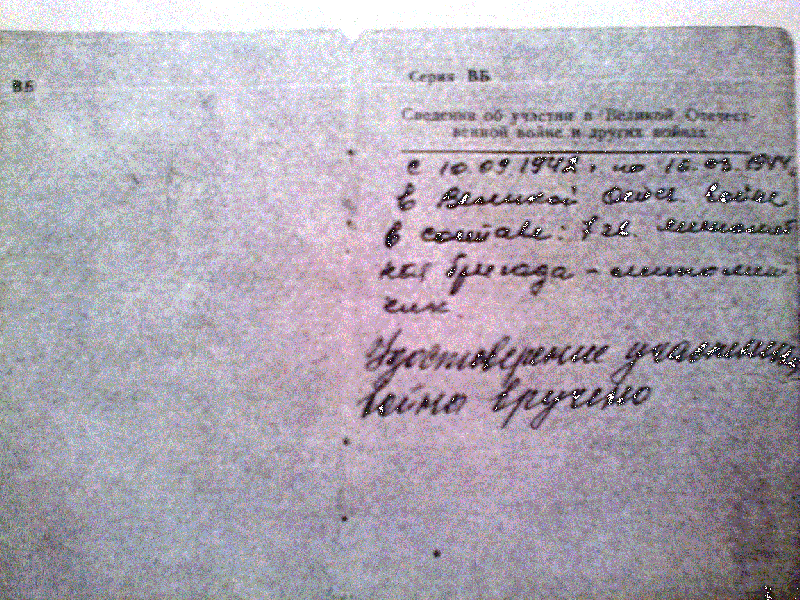 ВБ
Серия ВБ
Сведения об участии в Великой Отечест-
венной войне и других войнах
с 10.09.1942г по 10.03.1944
в Великой Отеч. войне
в составе: гв. миномет
ная бригада - миномет
чик.
Удостоверение участника
войны вручено